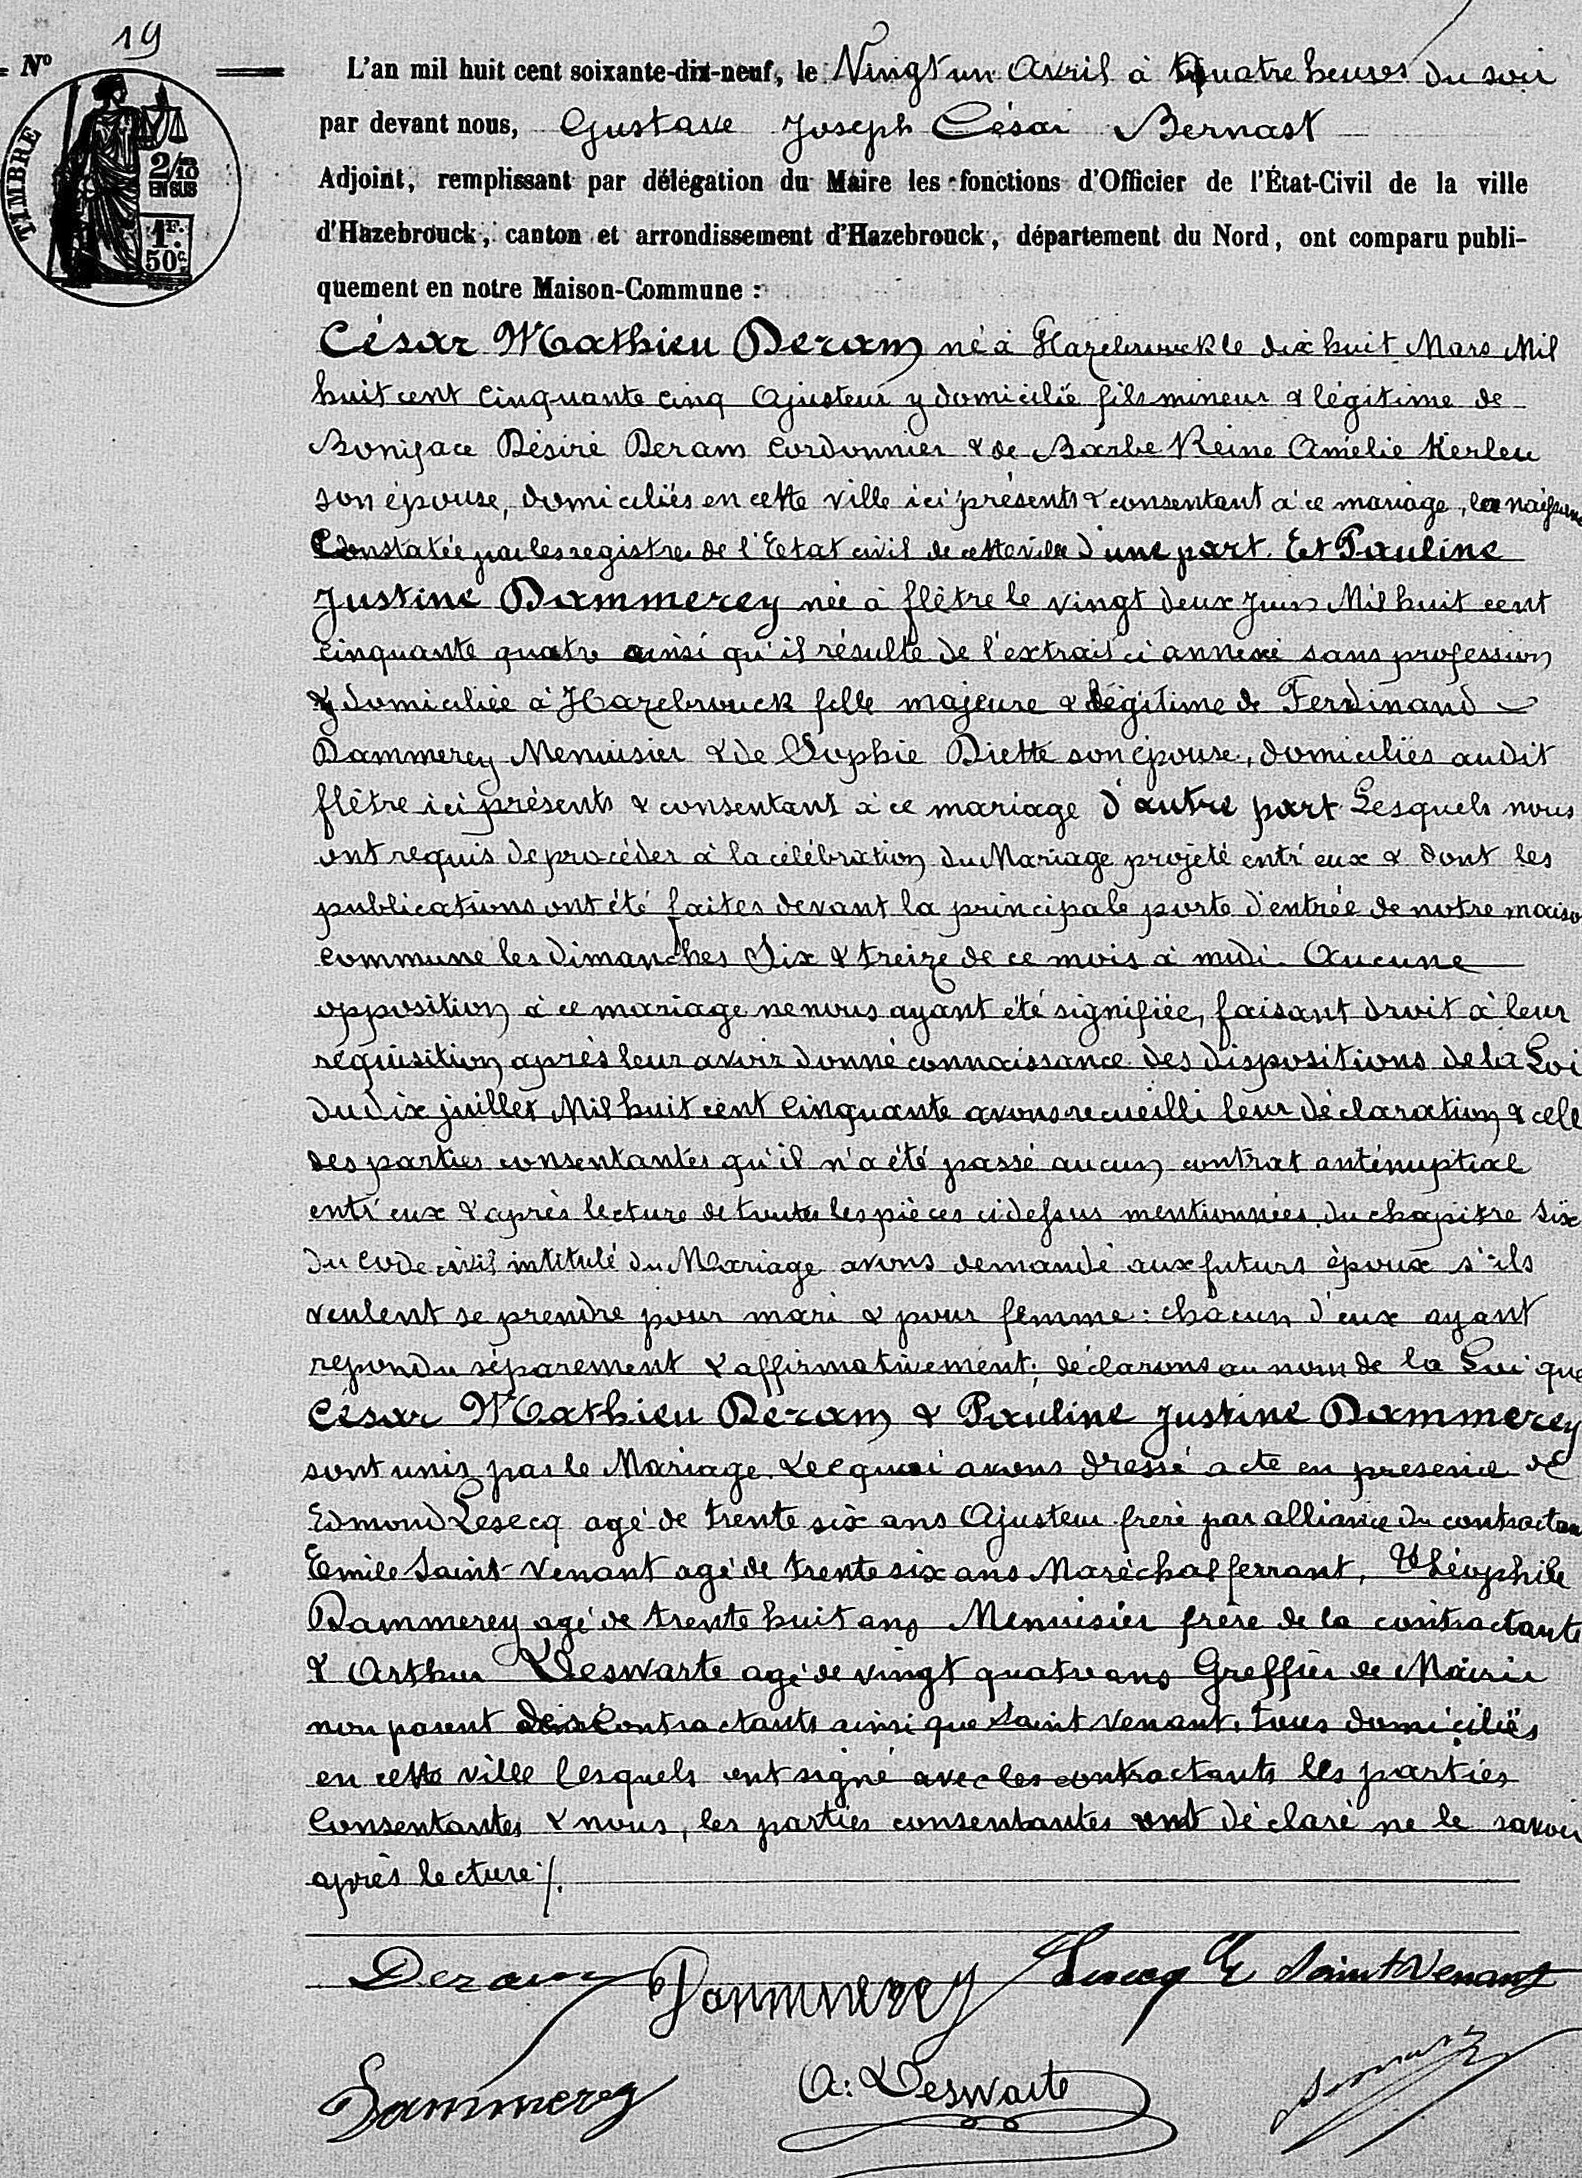 19
Nº
TIMBRE
2/10
EN SUS
1F.
50c.
L'an mil huit cent soixante-dix-neuf, le Vingt un Avril à Quatre heures du soir
par devant nous, Gustave Joseph César Bernast
Adjoint, remplissant par délégation du Maire les fonctions d'Officier de l'État-Civil de la ville
d'Hazebrouck, canton et arrondissement d'Hazebrouck, département du Nord, ont comparu publi-
quement en notre Maison-Commune :
César Mathieu Deram né à Hazebrouck le dix huit Mars Mil
huit cent cinquante cinq Ajusteur y domicilié fils mineur & légitime de
Boniface Désiré Deram Cordonnier & de Barbe Reine Amélie Kerleu
son épouse, domiciliés en cette ville ici présents & consentant à ce mariage, la naissance
Constatée par les registres de l'Etat civil de cette ville d'une part. Et Pauline
Justine Dammerey née à flêtre le vingt deux Juin Mil huit cent
cinquante quatre ainsi qu'il résulte de l'extrait ci annexé sans profession
& domiciliée à Hazebrouck fille majeure & légitime de Ferdinand
Dammerey Menuisier & de Sophie Diette son épouse, domiciliés audit
flêtre ici présents & consentant à ce mariage d'autre part Lesquels nous
ont requis de procéder à la célébration du Mariage projeté entr'eux & dont les
publications ont été faites devant la principale porte d'entrée de notre maiso
commune les dimanches Six & treize de ce mois à midi. Aucune
opposition à ce mariage ne nous ayant été signifiée, faisant droit à leur
réquisition après leur avoir donné connaissance des dispositions de la Loi
du dix juillet Mil huit cent cinquante avons recueilli leur déclaration & cell
des parties consentantes qu'il n'a été passé aucun contrat anténuptial
entr'eux & après lecture de toutes les pièces ci dessus mentionnées, du chapitre six
du code civil intitulé du Mariage avons demandé aux futurs époux s'ils
veulent se prendre pour mari & pour femme : chacun d'eux ayant
repondu séparement & affirmativement ; déclarons au nom de la Loi que
César Mathieu Deram & Pauline Justine Dammerey
sont unis par le Mariage. De quoi avons dressé acte en présence de
Edmond Lesecq agé de trente six ans Ajusteur frère par alliance du contractan
Emile Saint-Venant agé de trente six ans Maréchal ferrant, Théophile
Dammerey agé de trente huit ans Menuisier frère de la contractante
& Arthur Deswarte agé de vingt quatre ans Greffier de Mairie
non parent des Contractants ainsi que Saint Venant, tous domiciliés
en cette ville lesquels ont signé avec les contractants les parties
Consentantes & nous, les parties consentantes ont déclaré ne le savoir
après lecture ./.
Deram Dammerey Lesecq E Saint Venant
Dammerey A: Deswarte